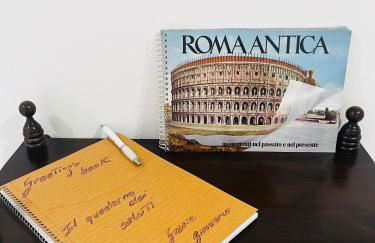 ROMA ANTICA
monumenti nel passato e nel presente
Greetings
book
Il quaderno dei
saluti
Grazie